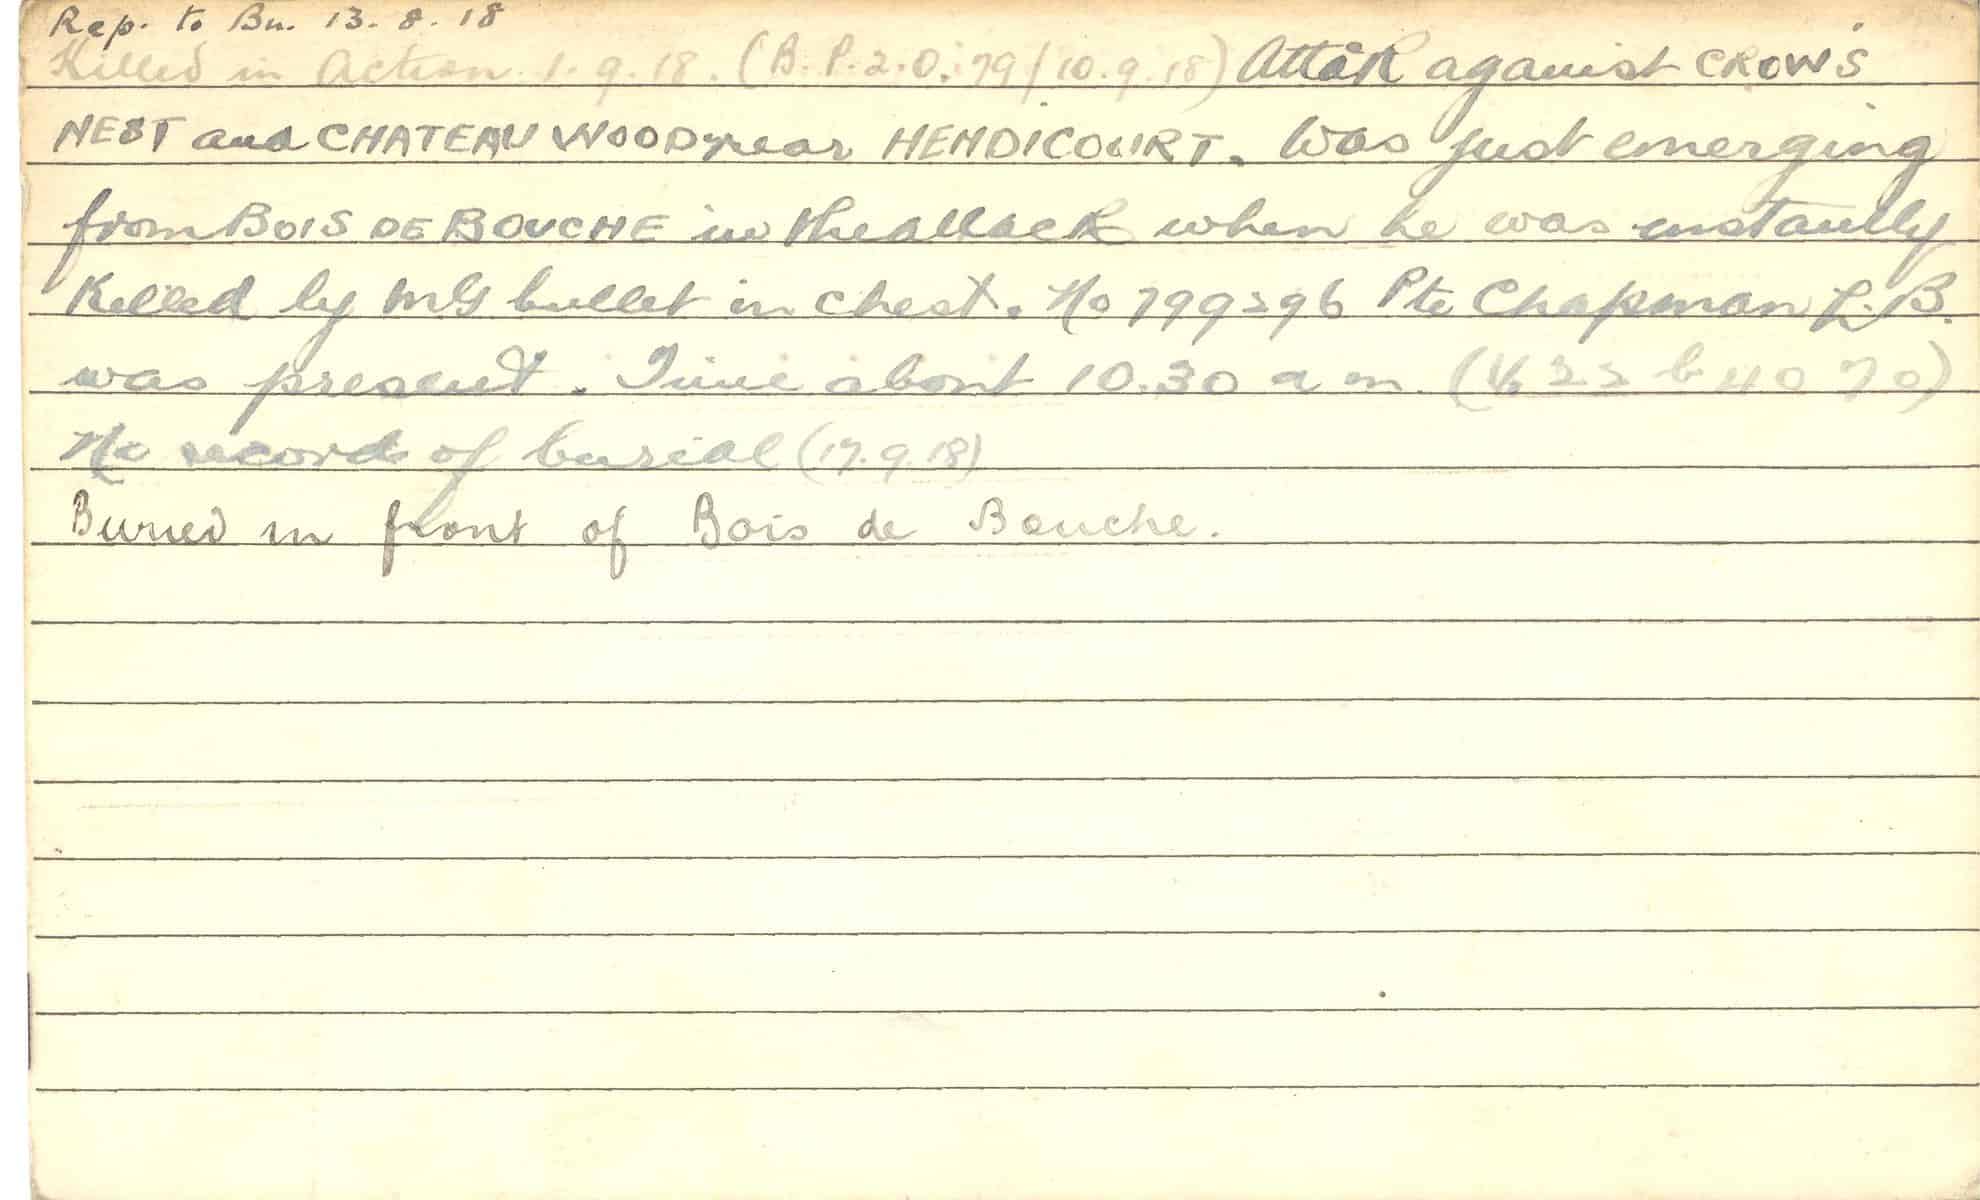 Rep. to Bn. 13. 8. 18
Killed in Action 1. 9. 18. (B. P. 2. O. 79/10. 9. 18) Attack against CROW'S
NEST and CHATEAU WOOD near HENDICOURT. Was just emerging
from BOIS DE BOUCHE in the attack when he was instantly
Killed by MG bullet in chest. No 799296 Pte Chapman L. B.
was present. Time about 10.30 a m.
No record of burial (17. 9. 18)
Buried in front of Bois de Bouche.